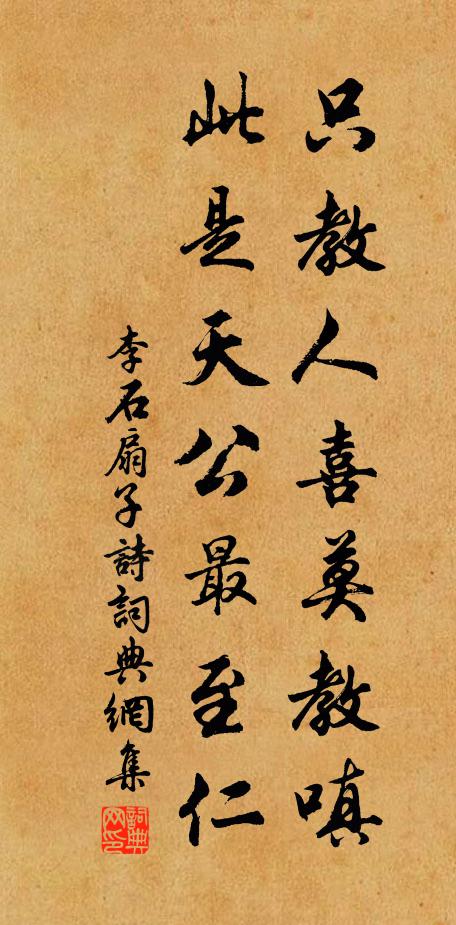 只教人喜莫教嗔
此是天公最至仁
李石扇子詩詞典網集
詞典網印